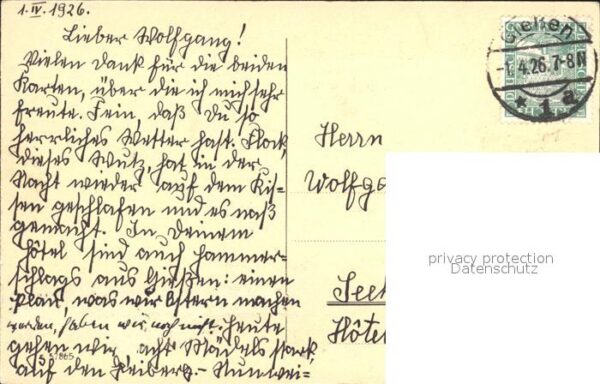 1.IV.1926.
Lieber Wolfgang!
Vielen Dank für die beiden
Karten, über die ich mich sehr
freute. Fein, daß Du so
herrliches Wetter hast. Flock,
dieses Wutz, hat in der
Nacht wieder auf dem Kis-
sen geschlafen und es naß
gemacht. In Deinem
Hôtel sind auch Hammer-
schlags aus Gießen: einen
Plan, was wir Ostern machen
werden, haben wir noch nicht. Heute
gehen wir, acht Mädels stark,
auf den Nun wei-
57865
Gießen
-1.4.26.7-8N
* 1a
Herrn
Wolfga
See
Hôte
privacy protection
Datenschutz